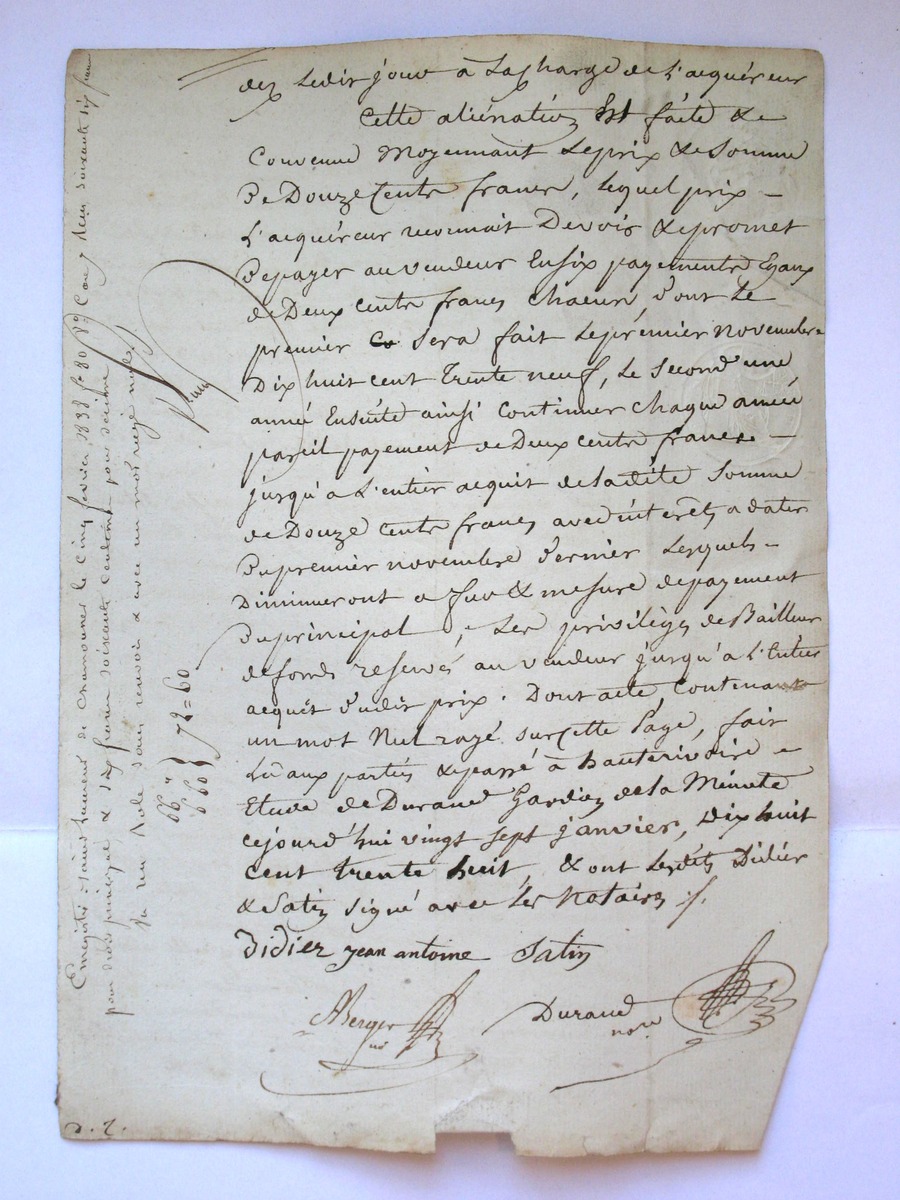 dez Ledit jour a La charge de L'acquéreur
Cette aliénation Est faite &
Convenue Moyennant Le prix & Somme
De Douze Cents francs, Lequel prix —
L'acquéreur reconnait Devoir & promet
De payer au vendeur En six payements Egaux
de Deux cents francs chacun, Dont Le
premier Sera fait Le premier Novembre
Dix huit cent Trente neuf, Le Second une
année Ensuite ainsi Continuer chaque année
pareil payement de Deux cents francs —
jusqu'a L'entier acquit de la dite Somme
de Douze Cents francs avec intérêts a dater
Du premier novembre Dernier Lesquels —
Diminueront a fur & mesure de payement
Du principal, Les privilèges de Bailleur
de fonds reservés au vendeur jusqu'a L'Entier
acquit Dudit prix. Dont acte Contenant
un mot Nul rayé sur cette Page, fait
Lu aux parties & passé à hauterivoire —
Etude de Durand Gardien de la Minute
cejourd'hui vingt sept janvier, Dix huit
Cent trente huit, & ont Lesdits Didier
& Satin Signé avec Les Notaires
Didier jean antoine Satin
ABerger
no
Durand
nore
Enregistré à Saint Laurent de Chamousset le Cinq février 1838 fo 80 Vo Cases
pour droit principal & six francs soixante centimes pour décime
sur un Rôle sans renvoi & avec un mot rayé nul.
66 "
6 60
72=60